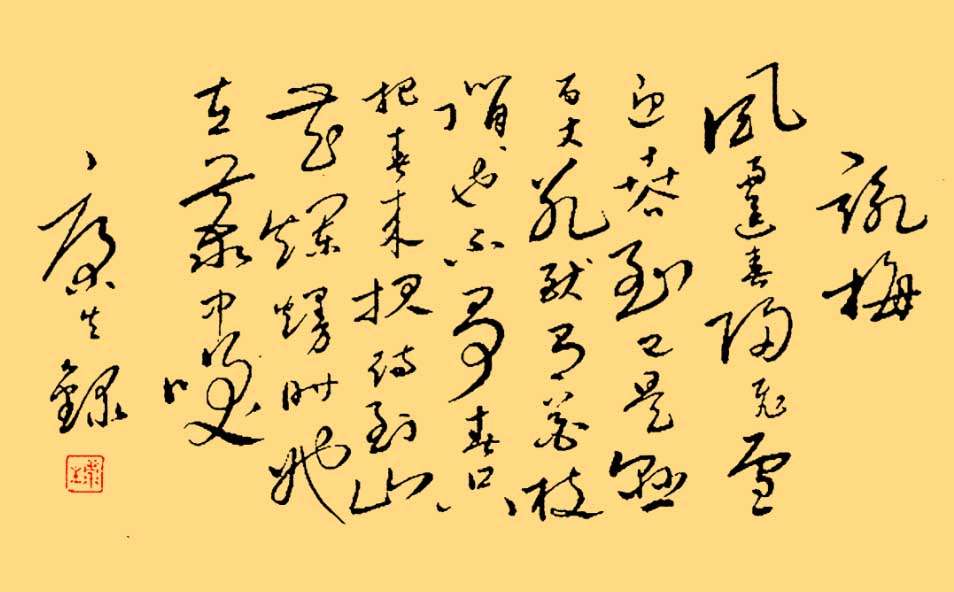 詠梅
風雨送春歸飛雪
迎春到已是懸
百丈冰猶有花枝
俏也不爭春只
把春來報待到山
花爛熳時她
在叢中笑
錄